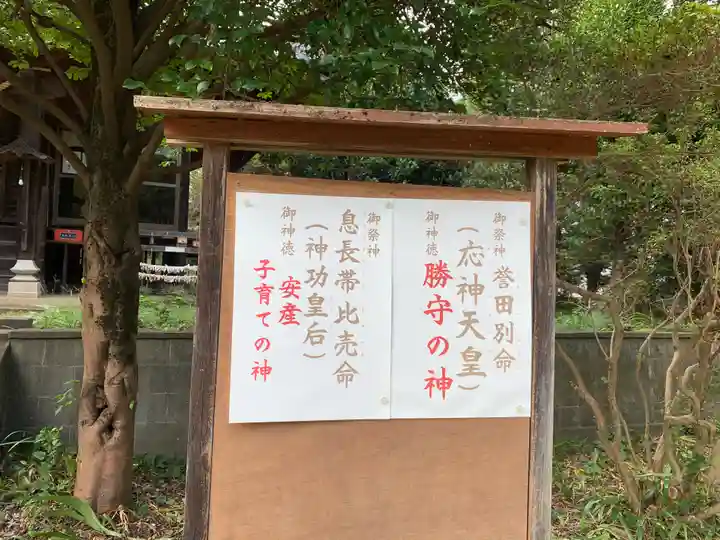 御祭神 誉田別命
(応神天皇)
御神徳 勝守の神
御祭神
息長帯比売命
(神功皇后)
御神徳 安産
子育ての神